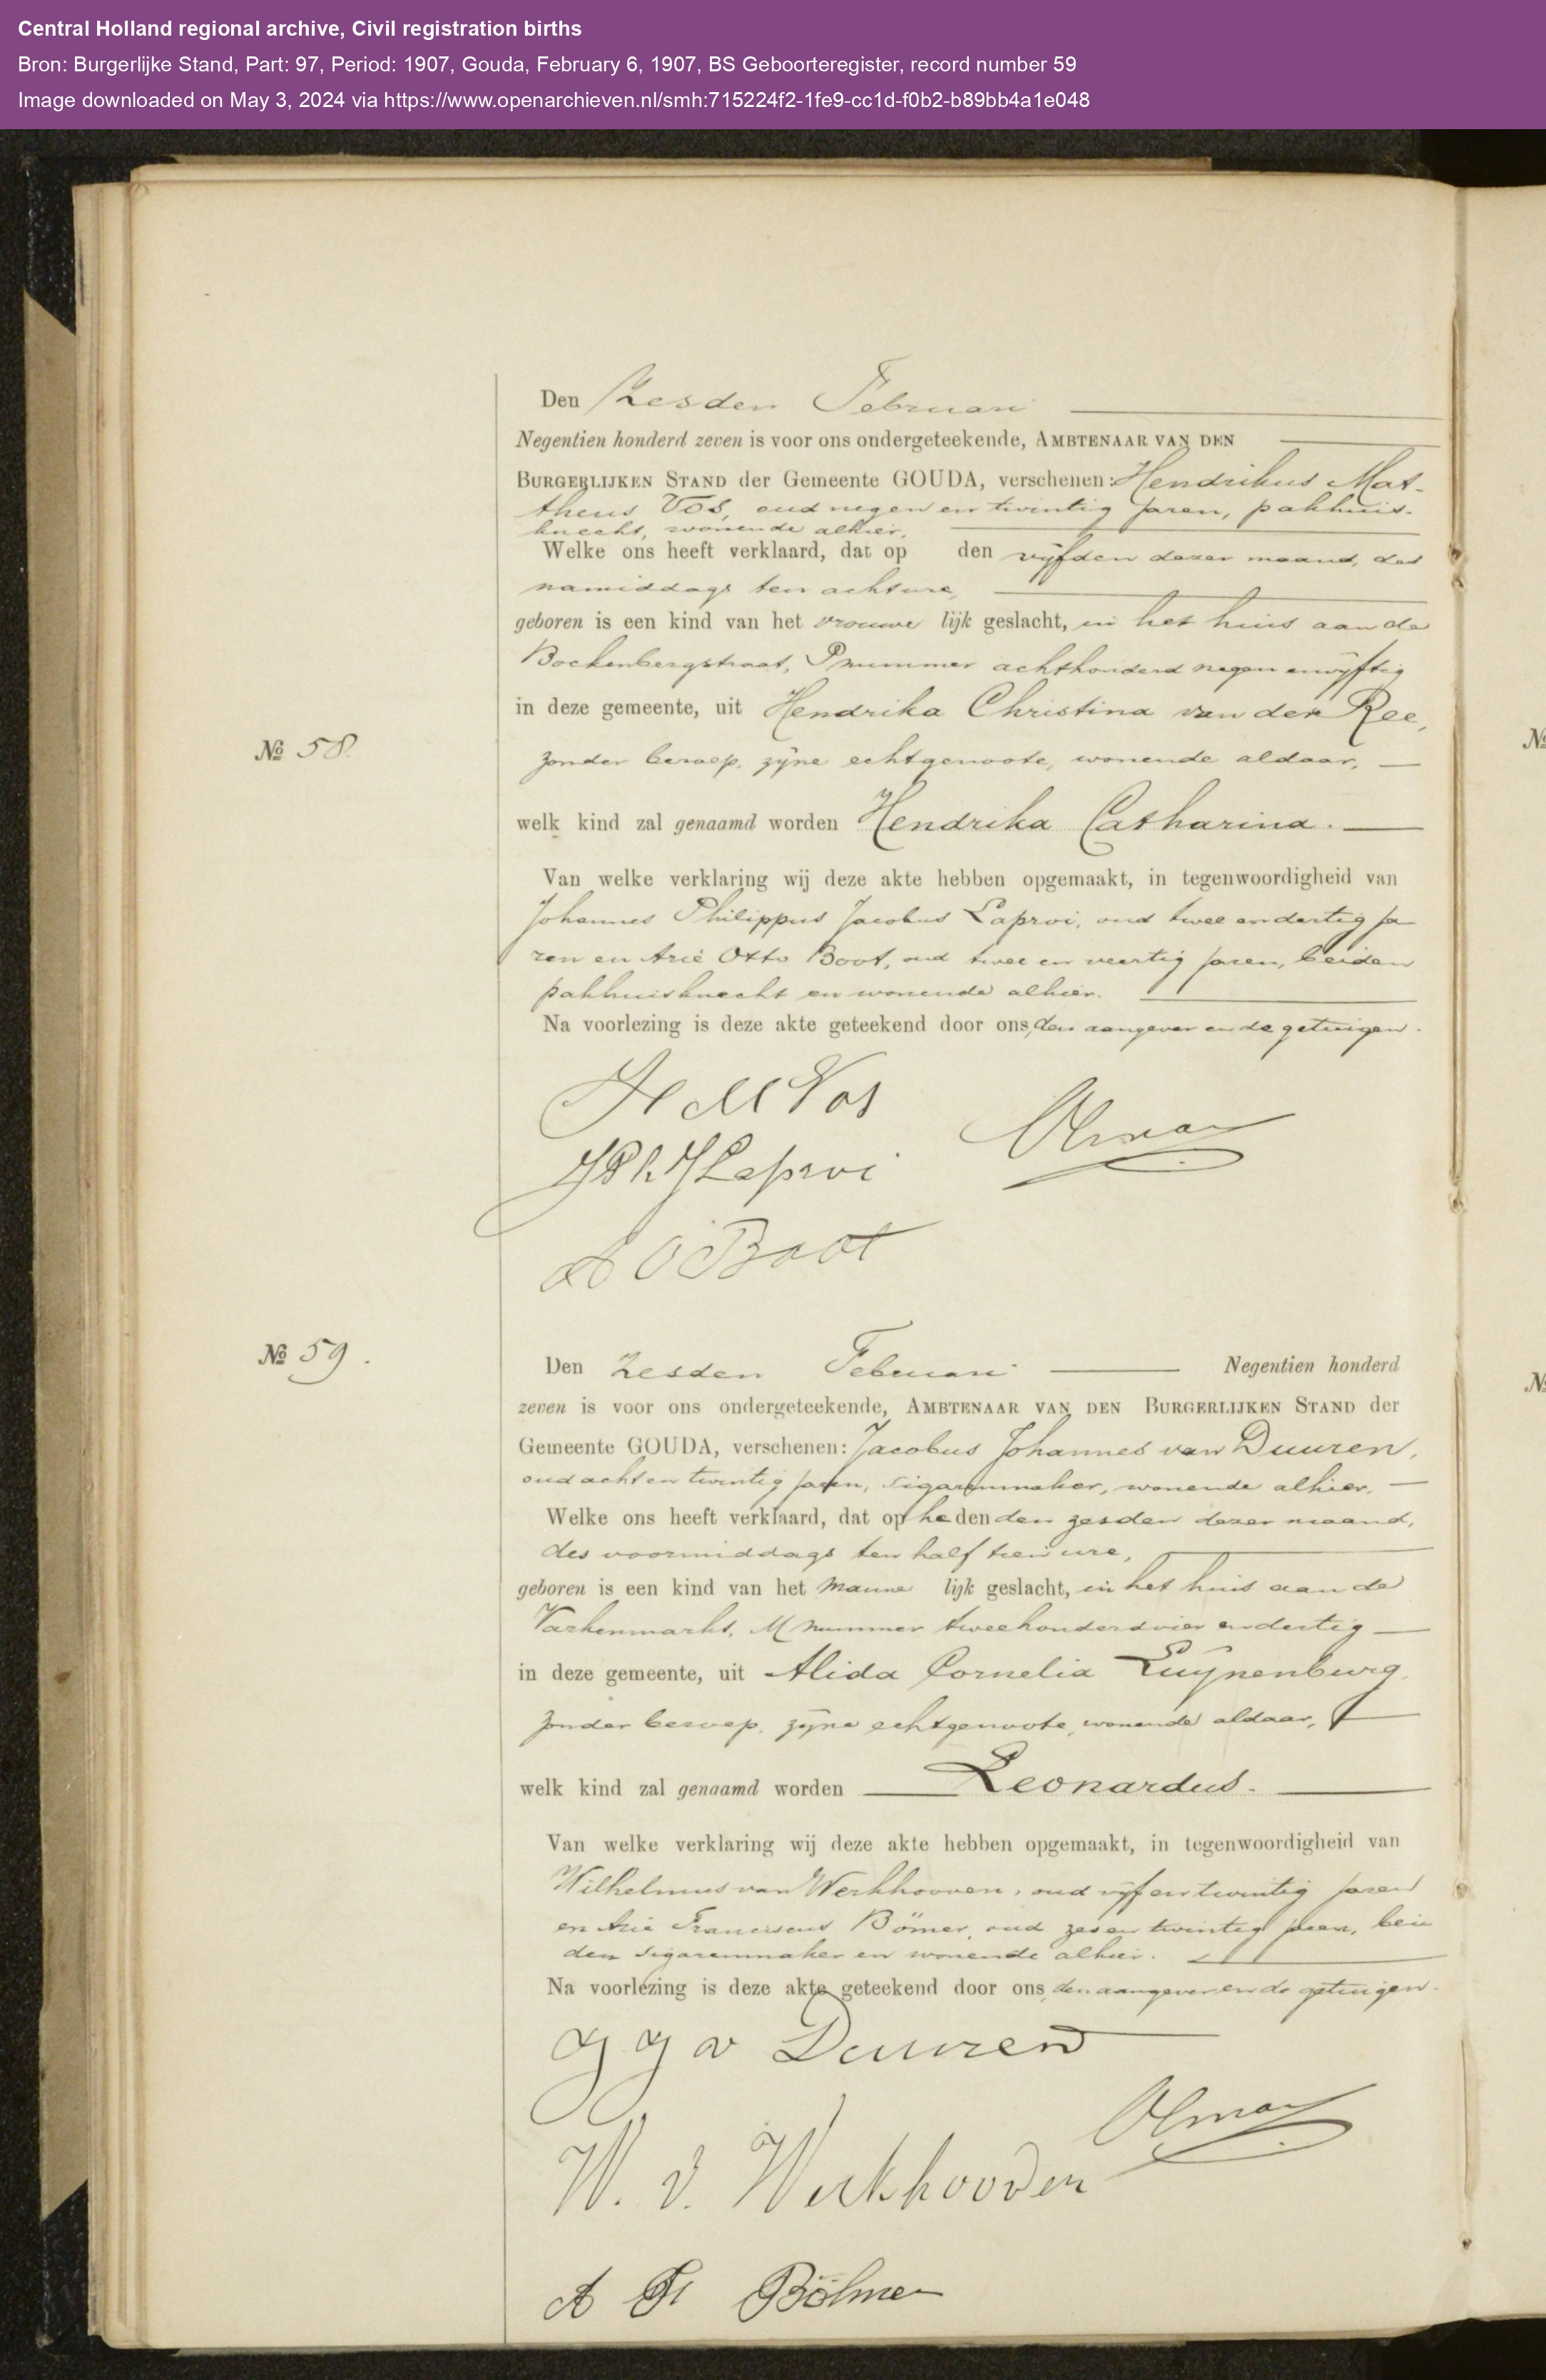 Central Holland regional archive, Civil registration births
Bron: Burgerlijke Stand, Part: 97, Period: 1907, Gouda, February 6, 1907, BS Geboorteregister, record number 59
Image downloaded on May 3, 2024 via https://www.openarchieven.nl/smh:715224f2-1fe9-cc1d-f0b2-b89bb4a1e048
Den Zesden Februari
Negentien honderd zeven is voor ons ondergeteekende, AMBTENAAR VAN DEN
BURGERLIJKEN STAND der Gemeente GOUDA, verschenen: Hendrikus Mat-
theus Vos, oud negen en twintig jaren, pakhuis-
knecht, wonende alhier,
Welke ons heeft verklaard, dat op den vijfden dezer maand, des
namiddags ten acht ure,
geboren is een kind van het vrouwe lijk geslacht, in het huis aan de
Bockenbergstraat, P nummer achthonderd negen en vijftig
in deze gemeente, uit Hendrika Christina van der Ree,
№ 58.
zonder beroep, zijne echtgenoote, wonende aldaar,
welk kind zal genaamd worden Hendrika Catharina.
Van welke verklaring wij deze akte hebben opgemaakt, in tegenwoordigheid van
Johannes Philippus Jacobus Laprvi, oud twee en dertig ja
ren en Arie Otto Boot, oud twee en veertig jaren, beiden
pakhuisknecht en wonende alhier.
Na voorlezing is deze akte geteekend door ons, den aangever en de getuigen.
H M Vos
J Ph J Laprvi
A O Boot
№ 59.
Den Zesden Februari Negentien honderd
zeven is voor ons ondergeteekende, AMBTENAAR VAN DEN BURGERLIJKEN STAND der
Gemeente GOUDA, verschenen: Jacobus Johannes van Duuren,
oud acht en twintig jaren, sigarenmaker, wonende alhier,
Welke ons heeft verklaard, dat op heden den zesden dezer maand,
des voormiddags ten half tien ure,
geboren is een kind van het manne lijk geslacht, in het huis aan de
Varkenmarkt, M nummer tweehonderd vier en dertig
in deze gemeente, uit Alida Cornelia Luijnenburg,
zonder beroep, zijne echtgenoote, wonende aldaar,
welk kind zal genaamd worden Leonardus.
Van welke verklaring wij deze akte hebben opgemaakt, in tegenwoordigheid van
Wilhelmus van Werkhooven, oud vijf en twintig jaren
en Arie Franciscus Bömer, oud zes en twintig jaren, bei
den sigarenmaker en wonende alhier.
Na voorlezing is deze akte geteekend door ons, den aangever en de getuigen.
J J v Duuren
W. v. Werkhooven
A Fr Böhmer